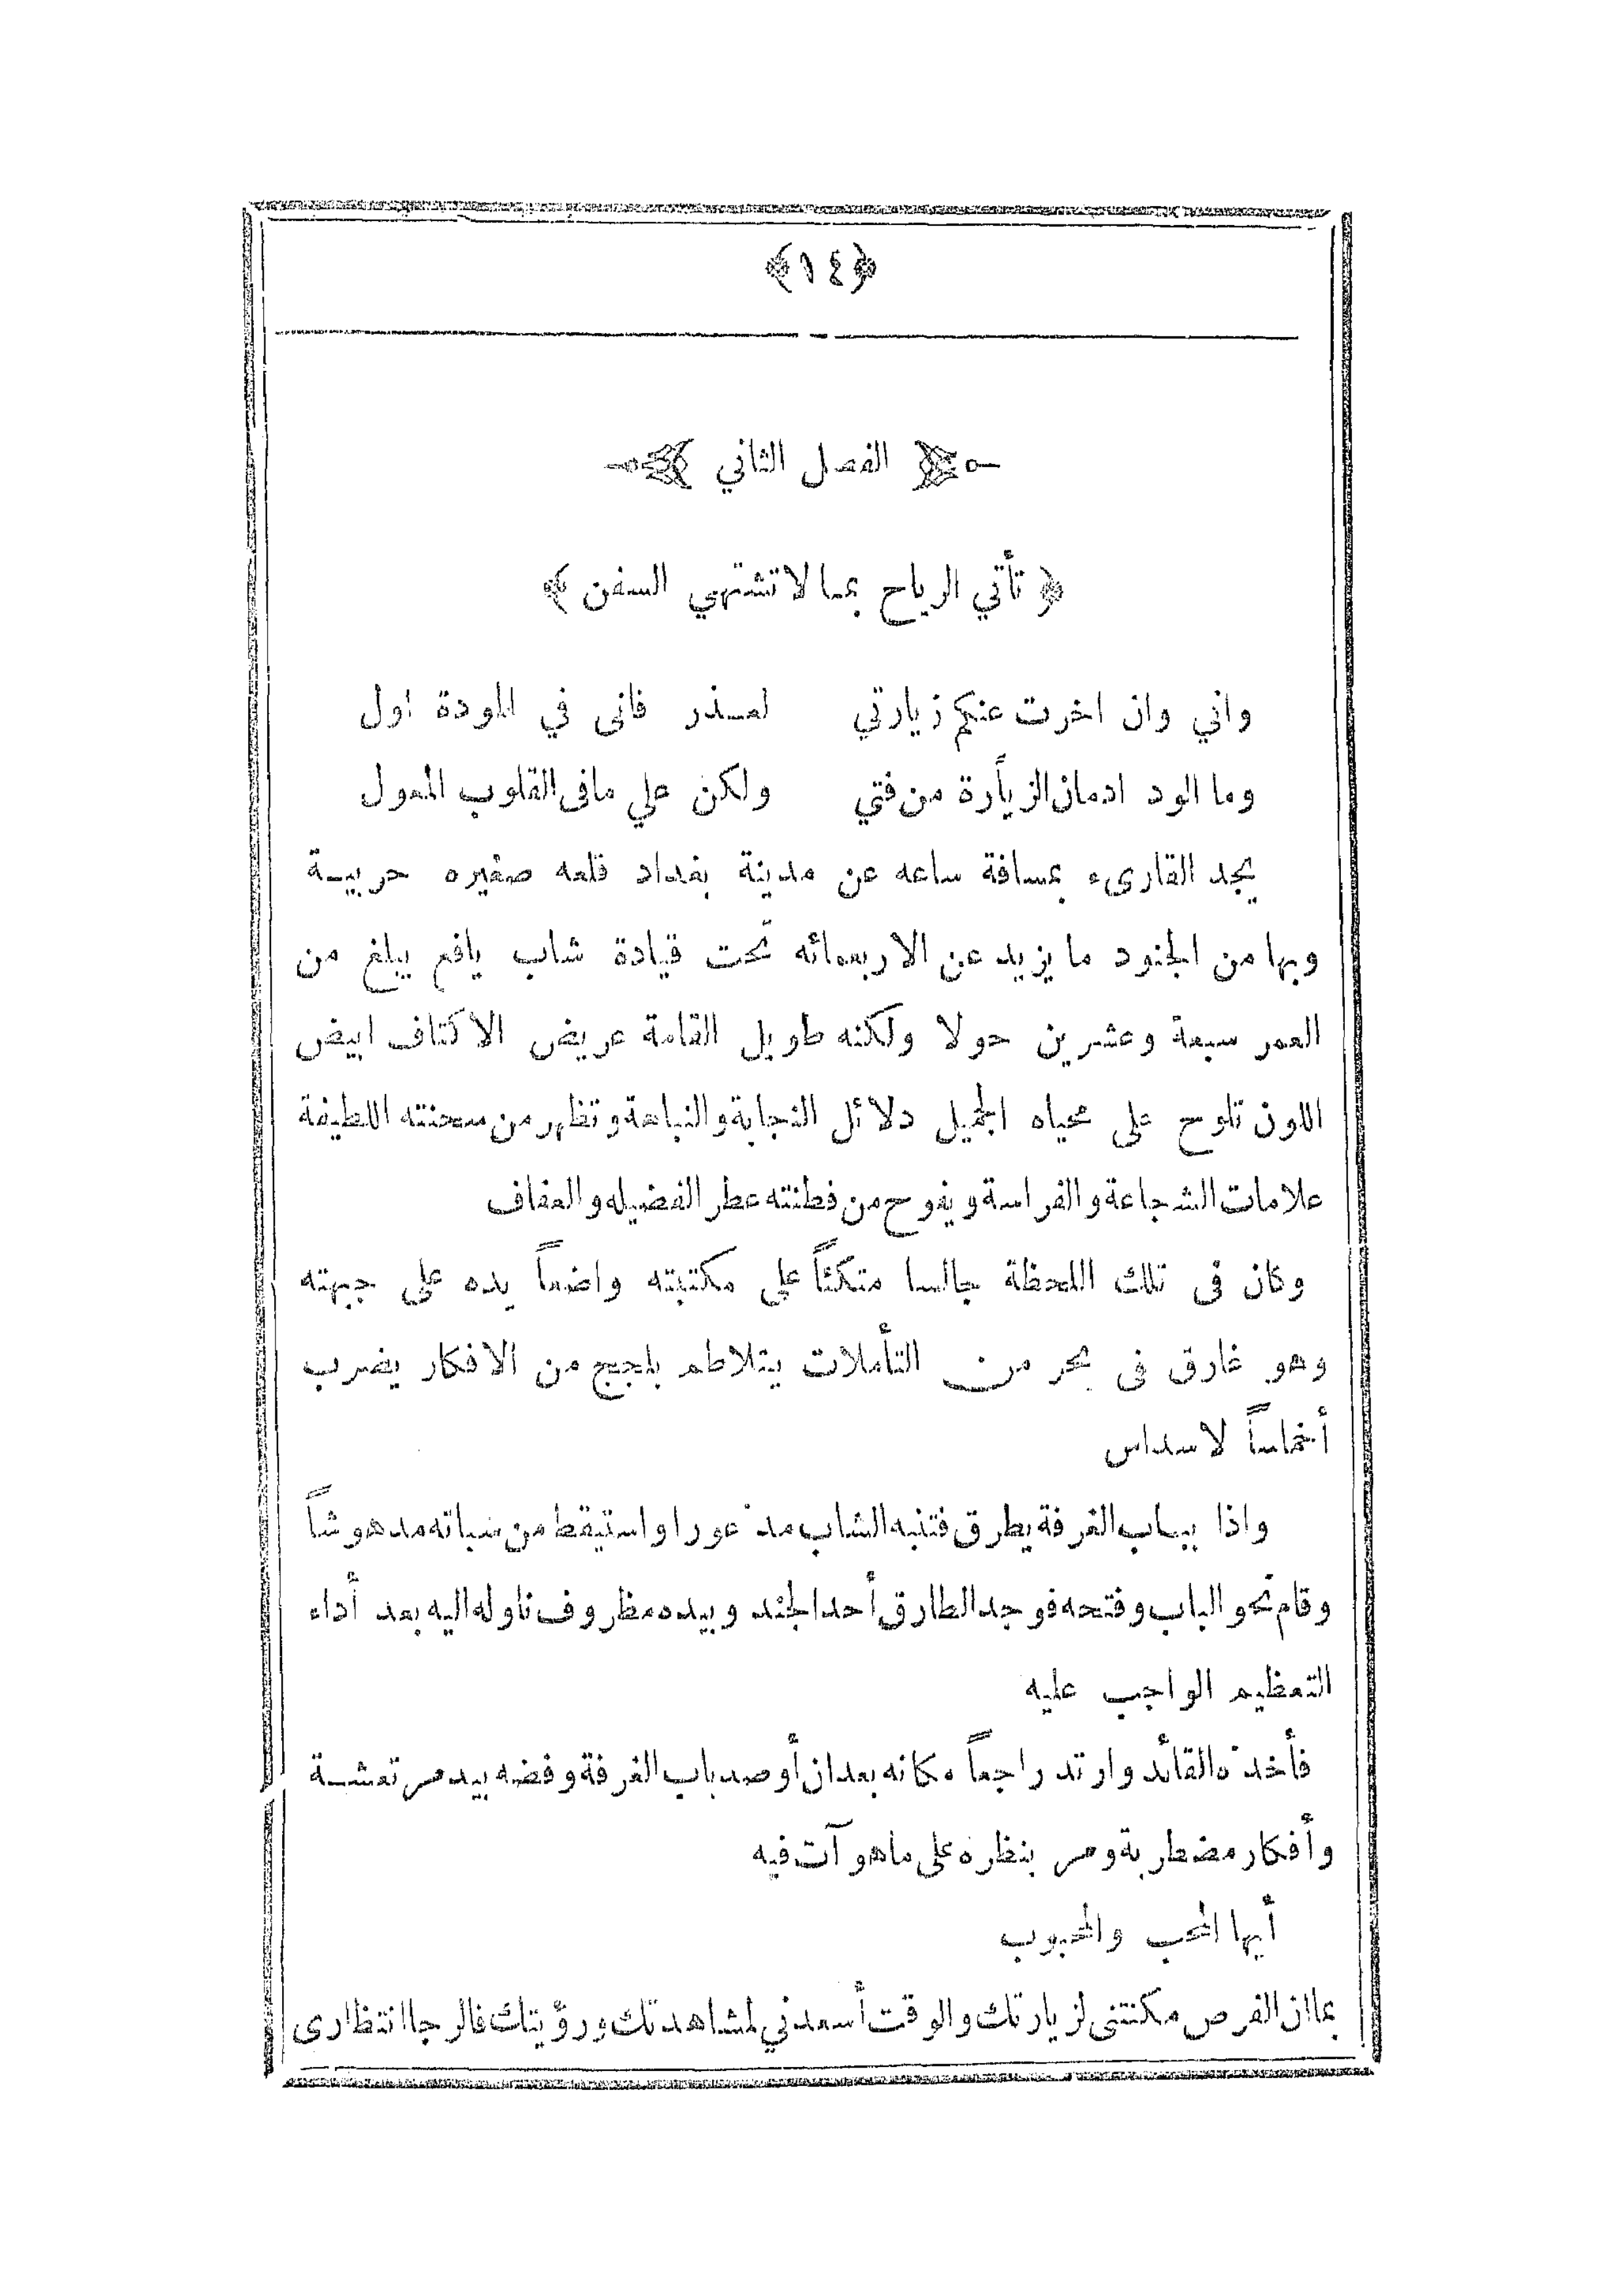 ﴿١٤﴾
الفصل الثاني
﴿ تأتي الرياح بما لا تشتهي السفن ﴾
واني وان اخرت عنكم زيارتي لعذر فانى في المودة اول
وما الود ادمان الزيارة من فتي ولكن علي مافى القلوب المعول
يجد القارىء بمسافة ساعه عن مدينة بغداد قلعه صغيره حربية
وبها من الجنود ما يزيد عن الاربعمائه تحت قيادة شاب يافع يبلغ من
العمر سبعة وعشرين حولا ولكنه طويل القامة عريض الاكتاف ابيض
اللون تلوح على محياه الجميل دلائل النجابة والنباهة وتظهر من سحنته اللطيفة
علامات الشجاعة والفراسة ويفوح من فطنته عطر الفضيله والعفاف
وكان فى تلك اللحظة جالسا متكئاً على مكتبته واضعاً يده على جبهته
وهو غارق فى بحر من التأملات يتلاطم بلجج من الافكار يضرب
أخماساً لاسداس
واذا بباب الغرفة يطرق فتنبه الشاب مذعورا واستيقظ من سباته مدهوشاً
وقام نحو الباب وفتحه فوجد الطارق أحد الجند وبيده مظروف ناوله اليه بعد أداء
التعظيم الواجب عليه
فأخذه القائد وارتد راجعاً مكانه بعد ان أوصد باب الغرفة وفضه بيد مرتعشة
وأفكار مضطربة ومر بنظره على ماهو آت فيه
أيها المحب والمحبوب
بما ان الفرص مكنتنى لزيارتك والوقت أسعدني لمشاهدتك ورؤيتك فالرجا انتظارى